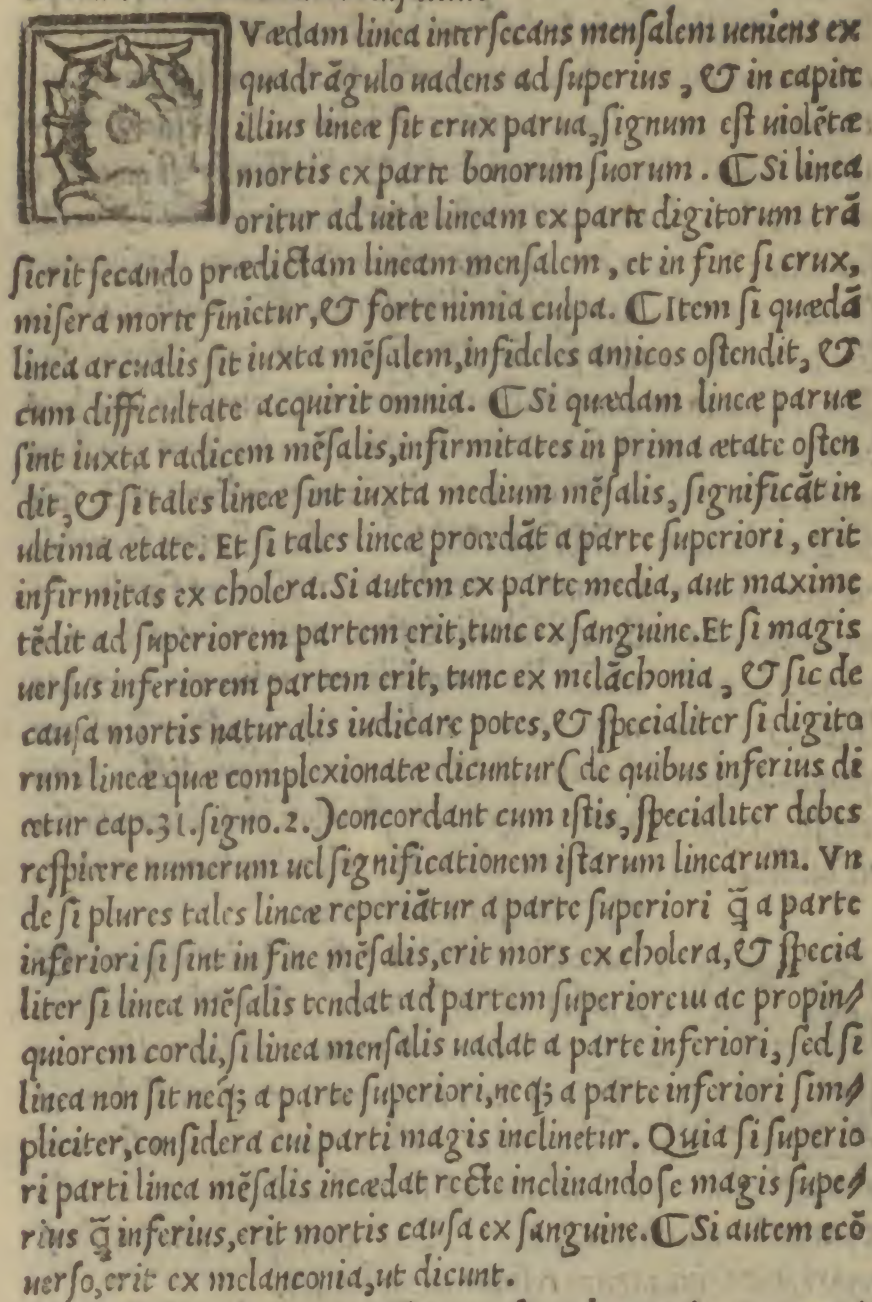 Vædam linea intersecans mensalem ueniens ex
quadrāgulo uadens ad superius, & in capite
illius lineæ sit crux parua, signum est uiolētæ
mortis ex parte bonorum suorum. ⁋Si linea
oritur ad uitæ lineam ex parte digitorum trā
sierit secando prædictam lineam mensalem, et in fine si crux,
misera morte finietur, & forte nimia culpa. ⁋Item si quædā
linea arcualis sit iuxta mēsalem, infideles amicos ostendit, &
cum difficultate acquirit omnia. ⁋Si quædam lineæ paruæ
sint iuxta radicem mēsalis, infirmitates in prima ætate osten
dit, & si tales lineæ sint iuxta medium mēsalis, significāt in
ultima ætate. Et si tales lineæ procedāt a parte superiori, erit
infirmitas ex cholera. Si autem ex parte media, aut maxime
tēdit ad superiorem partem erit, tunc ex sanguine. Et si magis
uersus inferiorem partem erit, tunc ex melāchonia, & sic de
causa mortis naturalis iudicare potes, & specialiter si digito
rum lineæ quæ complexionatæ dicuntur (de quibus inferius di
cetur cap. 31. signo. 2.) concordant cum istis, specialiter debes
respicere numerum uel significationem istarum linearum. Vn
de si plures tales lineæ reperiātur a parte superiori q̄ a parte
inferiori si sint in fine mēsalis, erit mors ex cholera, & specia
liter si linea mēsalis tendat ad partem superiorem ac propin⸗
quiorem cordi, si linea mensalis uadat a parte inferiori, sed si
linea non sit neq; a parte superiori, neq; a parte inferiori sim⸗
pliciter, considera cui parti magis inclinetur. Quia si superio
ri parti linea mēsalis incædat recte inclinando se magis supe⸗
rius q̄ inferius, erit mortis causa ex sanguine. ⁋Si autem ecō
uerso, erit ex melanconia, ut dicunt.